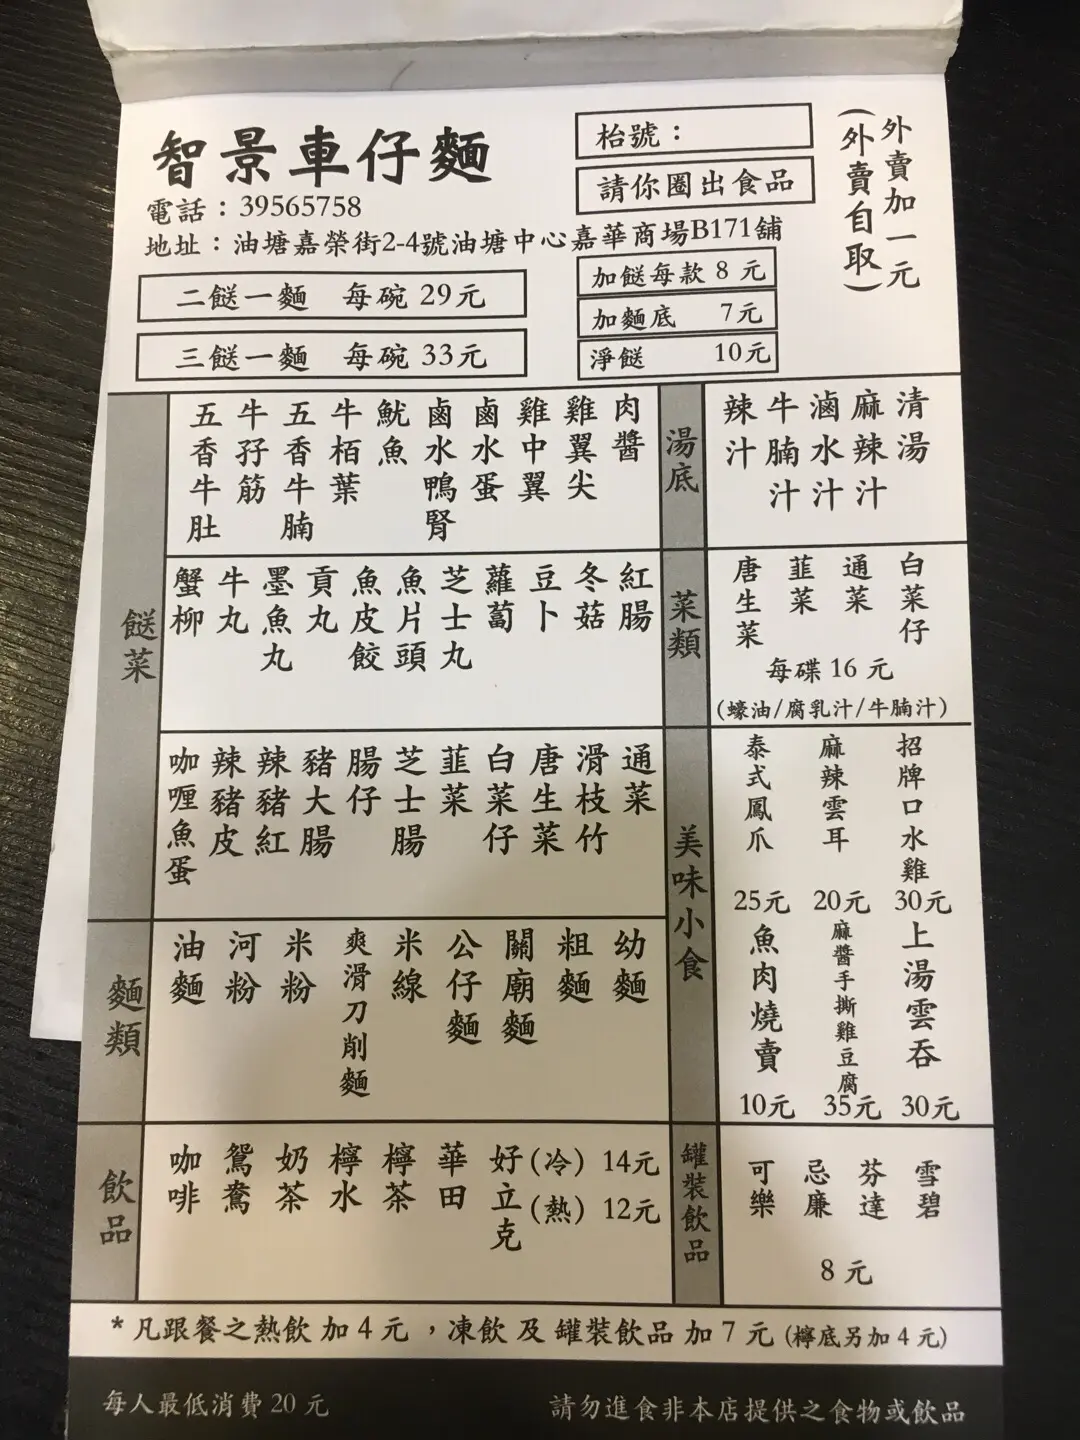 智景車仔麵
電話：39565758
地址：油塘嘉榮街2-4號油塘中心嘉華商場B171舖
枱號：
請你圈出食品
外賣加一元
(外賣自取)
二餸一麵 每碗 29元
三餸一麵 每碗 33元
加餸每款 8 元
加麵底 7元
淨餸 10元
餸菜
五香牛肚
牛孖筋
五香牛腩
牛栢葉
魷魚
鹵水鴨腎
鹵水蛋
雞中翼
雞翼尖
肉醬
蟹柳
牛丸
墨魚丸
貢丸
魚皮餃
魚片頭
芝士丸
蘿蔔
豆卜
冬菇
紅腸
咖喱魚蛋
辣豬皮
辣豬紅
豬大腸
腸仔
芝士腸
韮菜
白菜仔
唐生菜
滑枝竹
通菜
湯底
辣汁
牛腩汁
滷水汁
麻辣汁
清湯
菜類
唐生菜
韮菜
通菜
白菜仔
每碟 16 元
(蠔油/腐乳汁/牛腩汁)
美味小食
泰式鳳爪
25元
麻辣雲耳
20元
招牌口水雞
30元
魚肉燒賣
10元
麻醬手撕雞豆腐
35元
上湯雲吞
30元
麵類
油麵
河粉
米粉
爽滑刀削麵
米線
公仔麵
關廟麵
粗麵
幼麵
飲品
咖啡
鴛鴦
奶茶
檸水
檸茶
華田
好立克
(冷) 14元
(熱) 12元
罐裝飲品
可樂
忌廉
芬達
雪碧
8 元
* 凡跟餐之熱飲 加 4 元 ，凍飲 及 罐裝飲品 加 7 元 (檸底另加 4 元)
每人最低消費 20 元
請勿進食非本店提供之食物或飲品